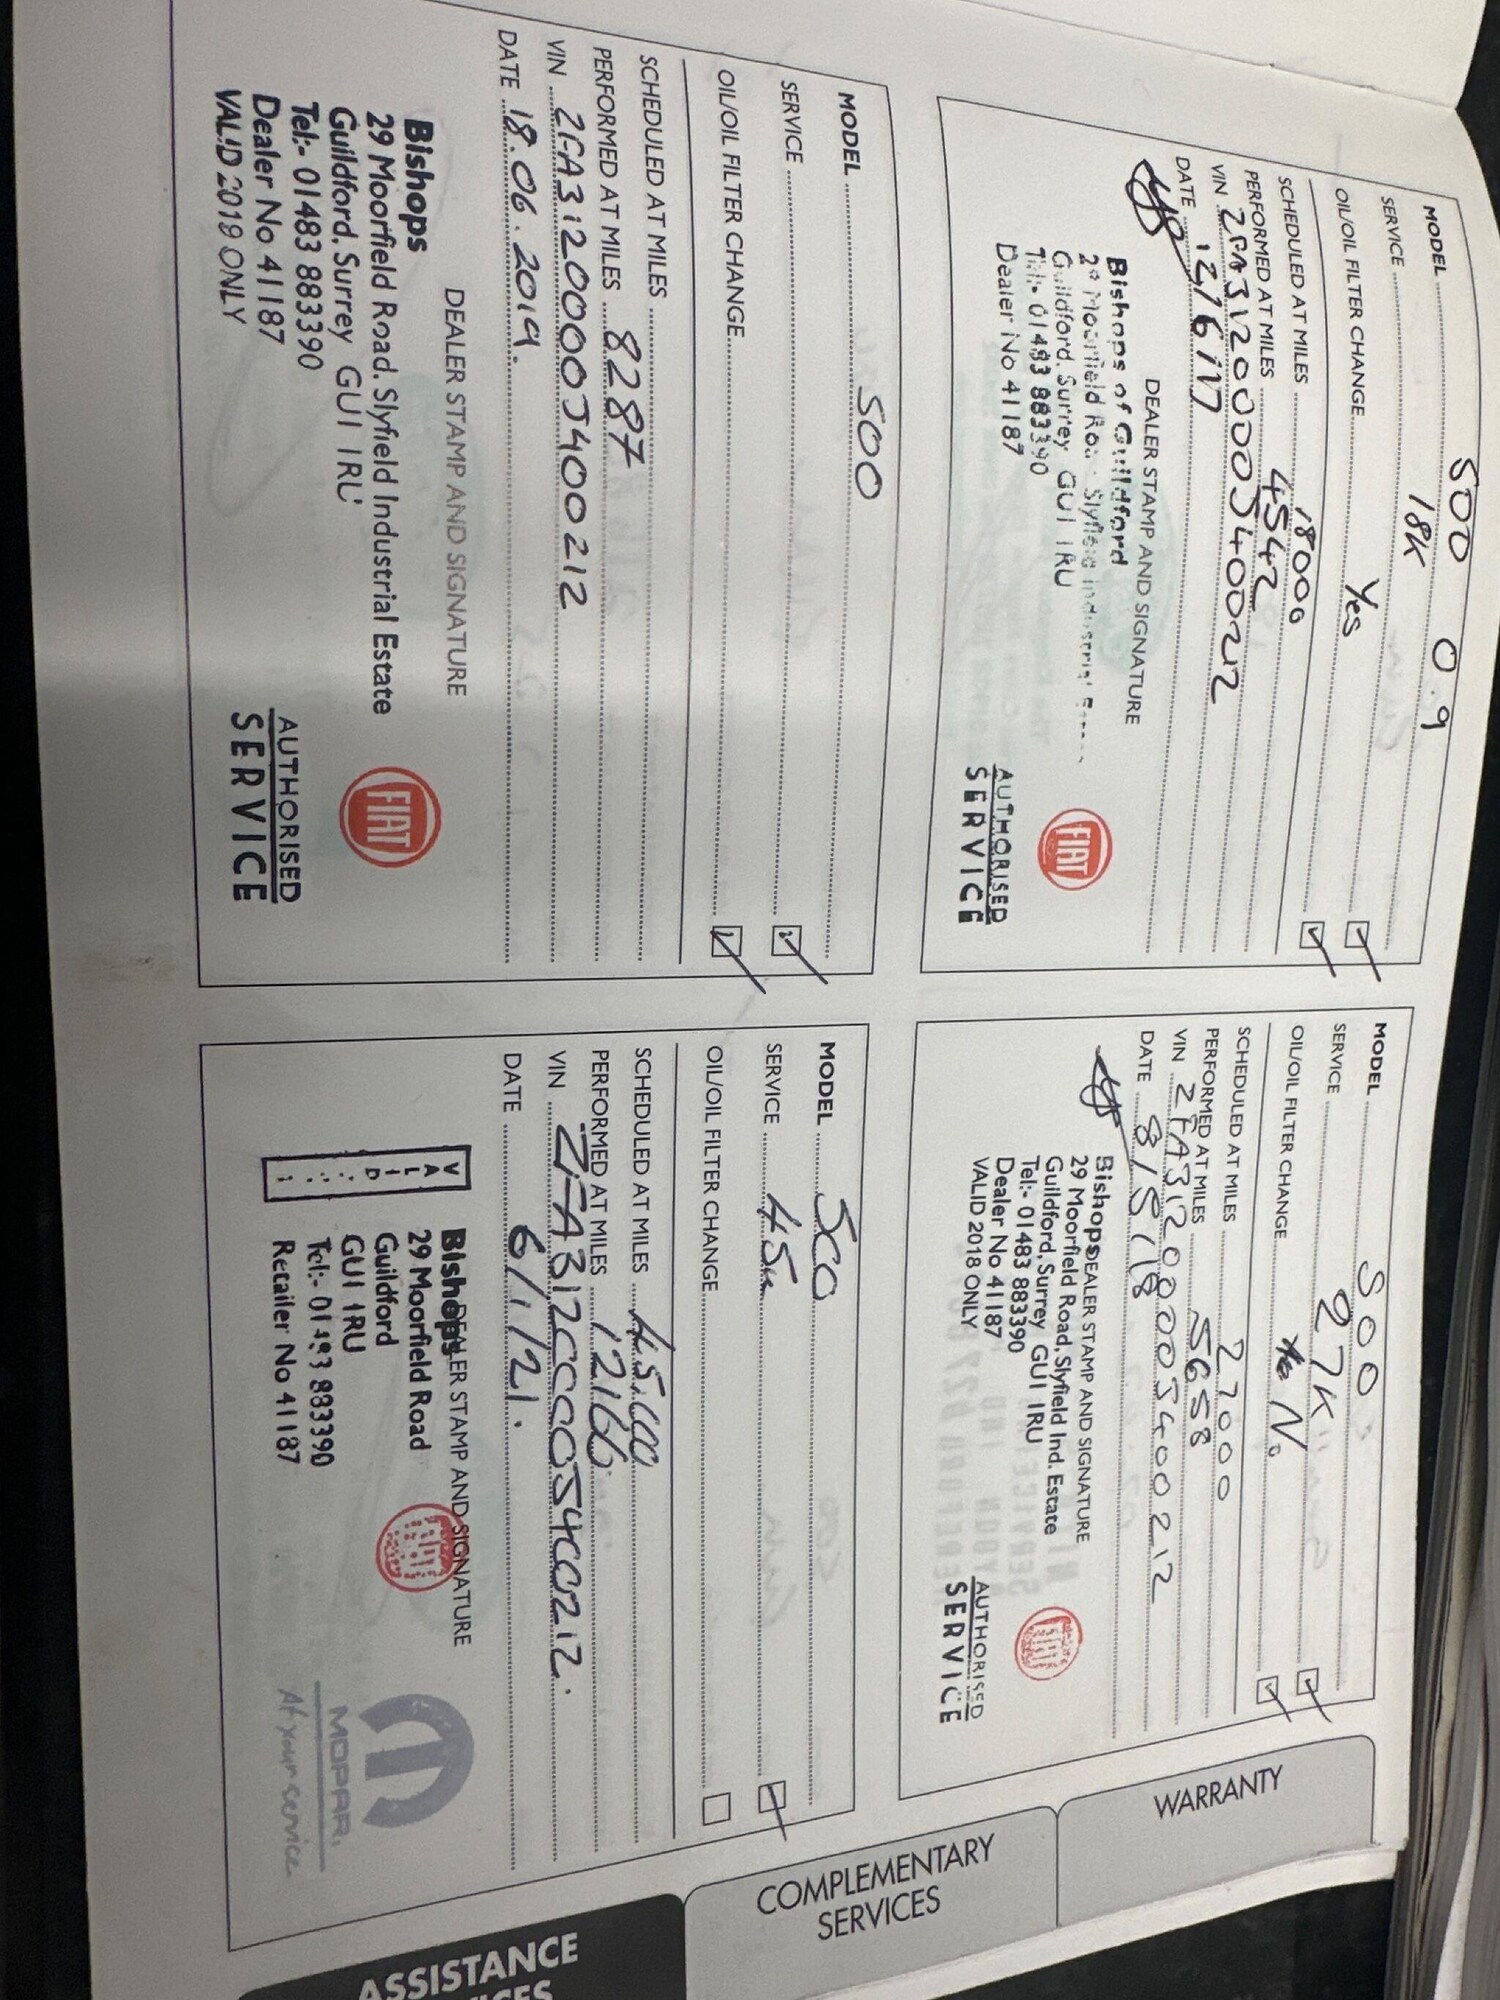 MODEL 500 0.9
SERVICE 18K
OIL/OIL FILTER CHANGE Yes
SCHEDULED AT MILES 18000
PERFORMED AT MILES 4542
VIN ZFA3120000J400212
DATE 12/6/17
DEALER STAMP AND SIGNATURE
Bishops of Guildford
29 Moorfield Road Slyfield Industrial
Guildford, Surrey GU1 1RU
Tel:- 01483 883390
Dealer No 41187
FIAT
AUTHORISED
SERVICE
MODEL 500
SERVICE 27K
OIL/OIL FILTER CHANGE No
SCHEDULED AT MILES 27000
PERFORMED AT MILES 5658
VIN ZFA3120000J400212
DATE 8/5/18
DEALER STAMP AND SIGNATURE
Bishops
29 Moorfield Road, Slyfield Ind. Estate
Guildford, Surrey GU1 1RU
Tel:- 01483 883390
Dealer No 41187
VALID 2018 ONLY
FIAT
AUTHORISED
SERVICE
MODEL 500
SERVICE
OIL/OIL FILTER CHANGE
SCHEDULED AT MILES
PERFORMED AT MILES 8287
VIN ZFA3120000J400212
DATE 18.06.2019.
DEALER STAMP AND SIGNATURE
Bishops
29 Moorfield Road. Slyfield Industrial Estate
Guildford. Surrey GU1 1RU
Tel:- 01483 883390
Dealer No 41187
VALID 2019 ONLY
FIAT
AUTHORISED
SERVICE
MODEL 500
SERVICE 45K
OIL/OIL FILTER CHANGE
SCHEDULED AT MILES 45,000
PERFORMED AT MILES 12166
VIN ZFA3120000J400212.
DATE 6/1/21.
DEALER STAMP AND SIGNATURE
VALID
Bishops
29 Moorfield Road
Guildford
GU1 1RU
Tel:- 01483 883390
Retailer No 41187
FIAT
MOPAR.
At your service
WARRANTY
COMPLEMENTARY
SERVICES
ASSISTANCE